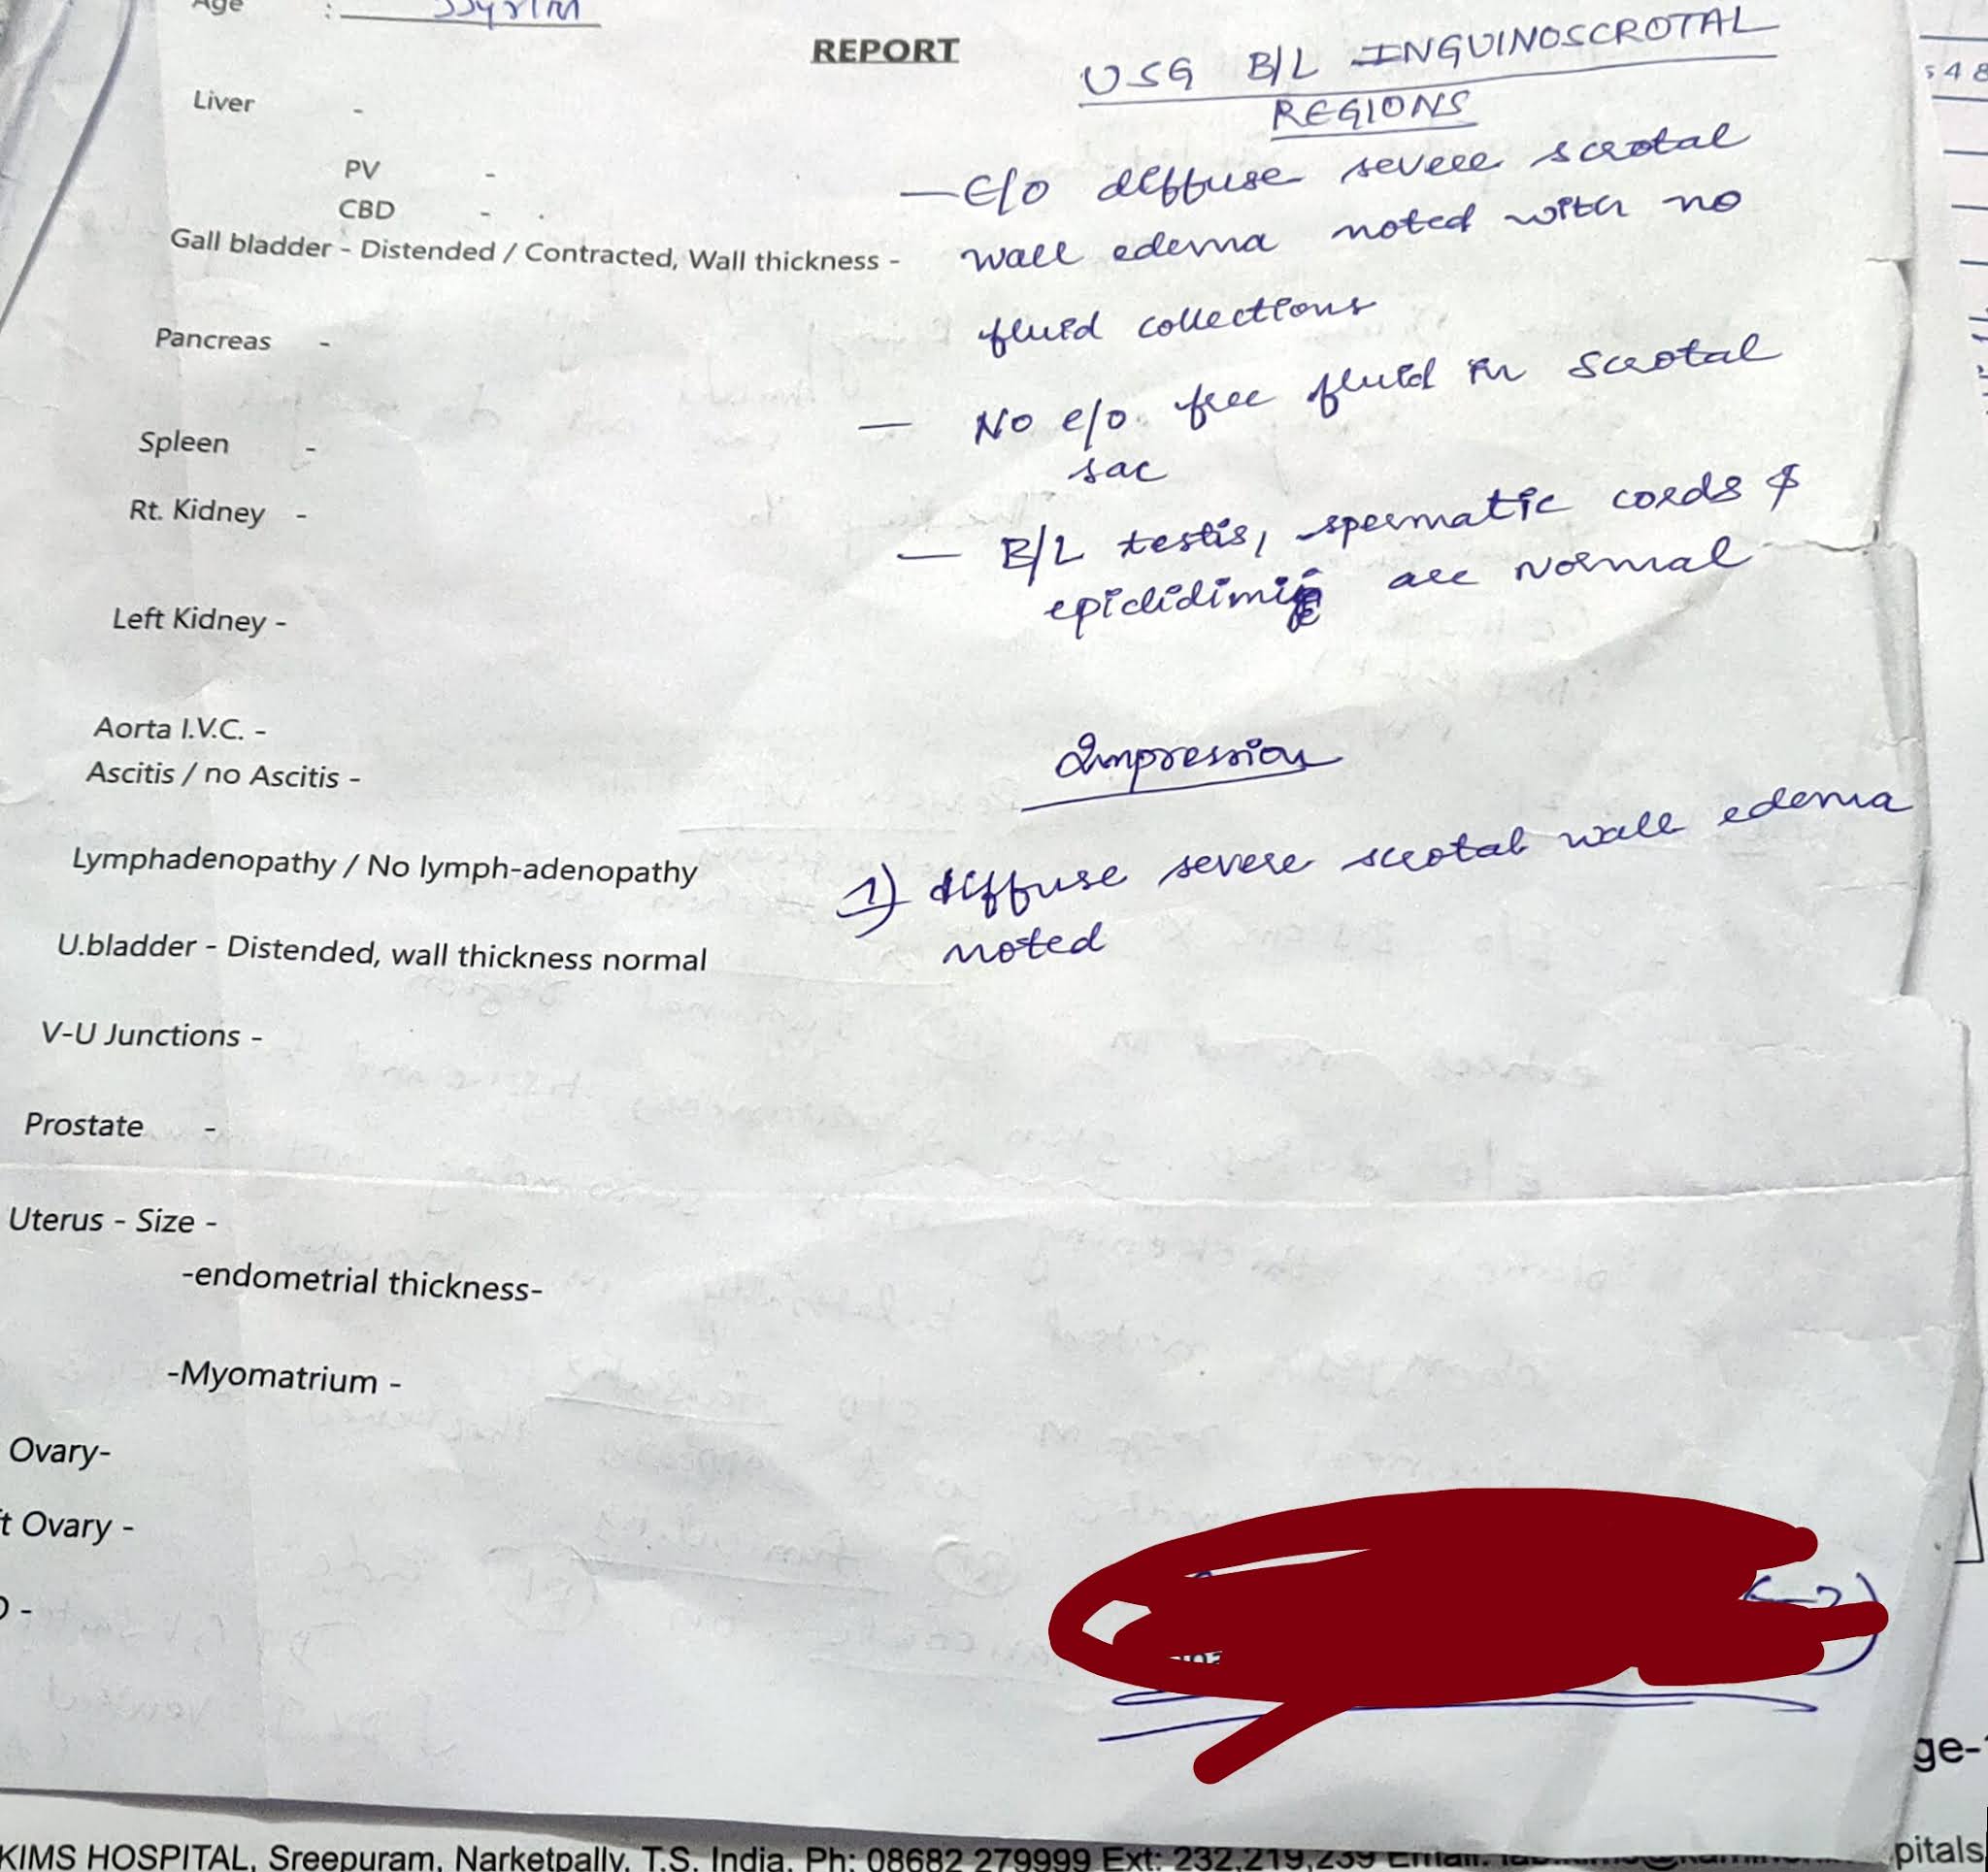 Age :
REPORT
USG B/L INGUINOSCROTAL
REGIONS
Liver -
PV -
CBD -
Gall bladder - Distended / Contracted, Wall thickness -
Pancreas -
Spleen -
Rt. Kidney -
Left Kidney -
Aorta I.V.C. -
Ascitis / no Ascitis -
Lymphadenopathy / No lymph-adenopathy
U.bladder - Distended, wall thickness normal
V-U Junctions -
Prostate -
Uterus - Size -
-endometrial thickness-
-Myomatrium -
Ovary-
t Ovary -
— E/o diffuse severe scrotal
wall edema noted with no
fluid collections
— No e/o free fluid in scrotal
sac
— B/L testis, spermatic cords &
are normal
Impression
1) diffuse severe scrotal wall edema
noted
ge-
KIMS HOSPITAL, Sreepuram, Narketpally, T.S. India. Ph: 08682 279999 Ext: 232,219,239 Email:
pitals